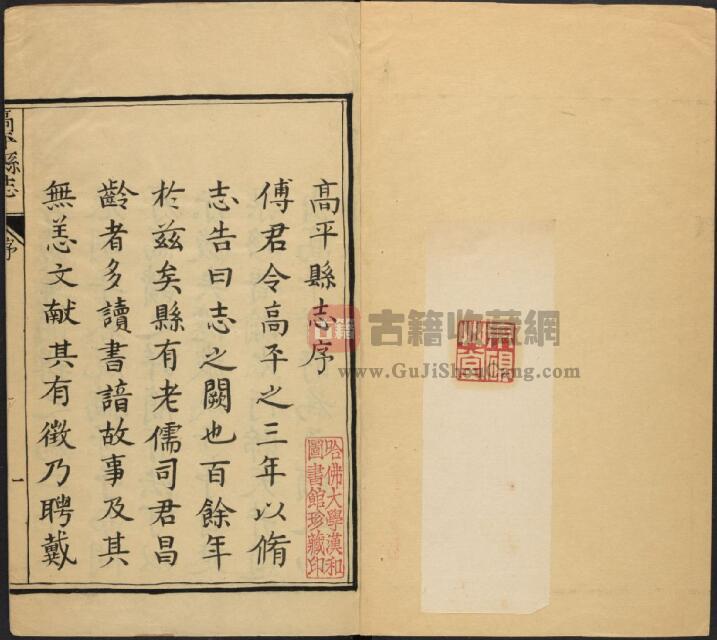 高平縣志序
傅君令高平之三年以脩
志告曰志之闕也百餘年
於兹矣縣有老儒司君昌
齡者多讀書諳故事及其
無恙文献其有徵乃聘戴
高平縣志
序
一
哈佛大學漢和
圖書館珍藏印
古籍 古籍收藏網
www.GuJiShouCang.com